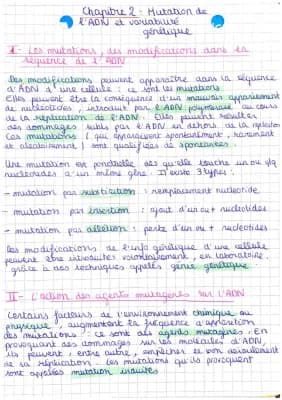 Chapitre 2 : Mutation de
l'ADN et variabilité
génétique
I- Les mutations, des modifications dans la
séquence de l'ADN
Des modifications peuvent apparaître dans la séquence
d'ADN d'une cellule : ce sont les mutations
Elles peuvent être la conséquence d'un mauvais appariement
de nucléotides, introduit par l'ADN polymérase au cours
de la réplication de l'ADN. Elles peuvent résulter
des dommages subis par l'ADN en dehors de la réplication
Ces mutations (qui apparaissent spontanément, rarement
et aléatoirement) sont qualifiées de spontanées.
Une mutation est ponctuelle dès qu'elle touche un ou qlq
nucléotides d'un même gène. Il existe 3 types :
- mutation par substitution : remplacement nucléotide
- mutation par insertion : ajout d'un ou + nucléotides
- mutation par délétion : perte d'un ou + nucléotides
Des modifications de l'info génétique d'une cellule
peuvent être introduites volontairement, en laboratoire,
grâce à nos techniques appelés génie génétique
II- L'action des agents mutagènes sur l'ADN
Certains facteurs de l'environnement chimique ou
physique, augmentent la fréquence d'apparition
des mutations : ce sont des agents mutagènes. En
provoquant des dommages sur les molécules d'ADN,
ils peuvent, entre autre, empêcher le bon déroulement
de sa réplication. Les mutations qu'ils provoquent
sont appelées mutation induites